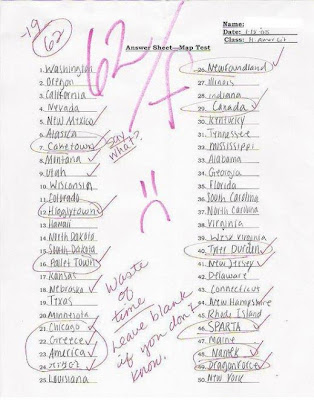 -19
62
62/F
Name:
Date: 1-18-08
Class:
Answer Sheet—Map Test
1. Washington
2. Oregon
3. California
4. Nevada
5. New Mexico
6. Alaska
7. Cametown
Say what?
8. Montana
9. Utah
10. Wisconsin
11. Colorado
12. Higglytown
13. Hawaii
14. North Dakota
15. South Dakota
16. Pallet Town
17. Kansas
18. Nebraska
19. Texas
20. Minnesota
21. Chicago
22. Greece
23. America
24.
25. Louisiana
:(
Waste
of
time
Leave blank
if you don't
know.
26. Newfoundland
27. Illinois
28. Indiana
29. Canada
30. Kentucky
31. Tennessee
32. Mississippi
33. Alabama
34. Georgia
35. Florida
36. South Carolina
37. North Carolina
38. Virginia
39. West Virginia
40. Tyler Durden
41. New Jersey
42. Delaware
43. Connecticut
44. New Hampshire
45. Rhode Island
46. SPARTA
47. Maine
48. Namek
49. Dragon Force
50. New York